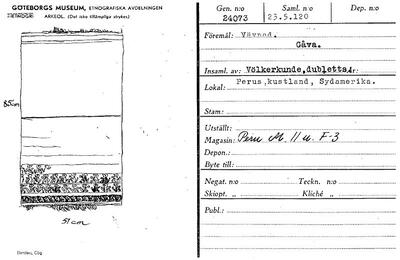 GÖTEBORGS MUSEUM, ETNOGRAFISKA AVDELNINGEN
ARKEOL. (Det icke tillämpliga strykes)
85cm
51 cm
Gen. n:o Saml. n:o Dep. n:o
24073 23.5.120
Föremål: Vävnad.
Gåva.
Insaml. av: Völkerkunde, dubletta
Lokal: Perus kustland, Sydamerika.
Stam:
Utställt:
Magasin: Peru M. 11 u. F-3
Depon.:
Byte till:
Negat. n:o Teckn. n:o
Skiopt. „ Kliché „
Publ.: